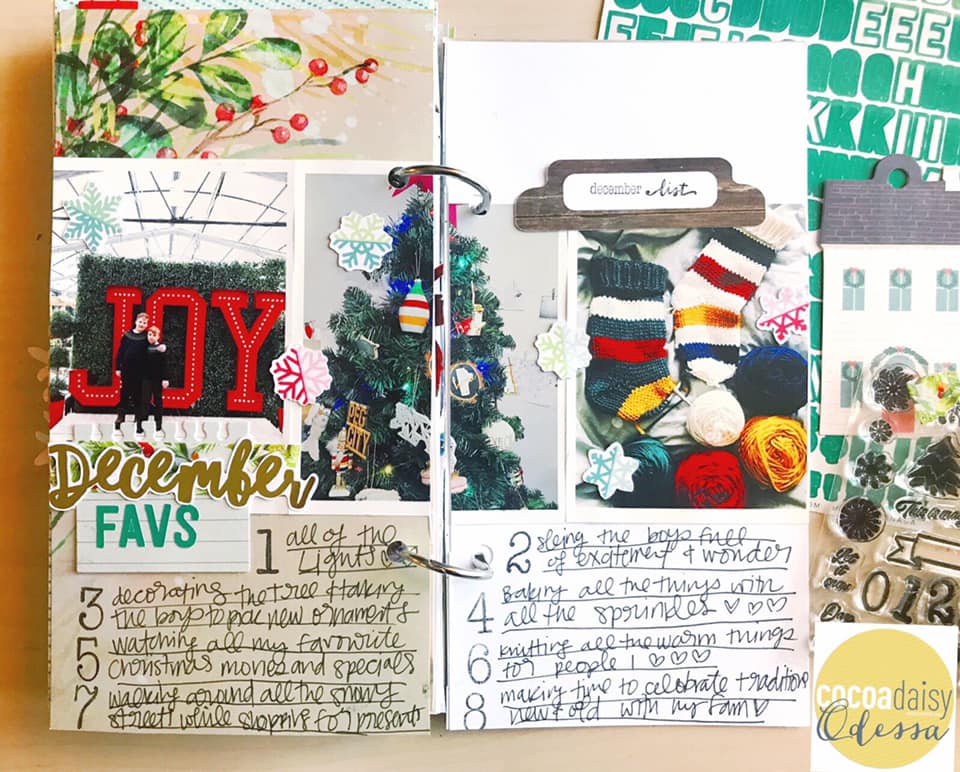 december list
JOY
December
FAVS
1 all of the
Lights
2 seeing the boys full
of excitement & wonder
3 decorating the tree & taking
the boys to pick new ornaments
4 Baking all the things with
all the sprinkles
5 watching all my favourite
Christmas movies and specials
6 knitting all the warm things
for people I
7 walking around all the snowy
street! while shopping for presents
8 making time to celebrate traditions
new & old with my fam
012
cocoadaisy
Odessa